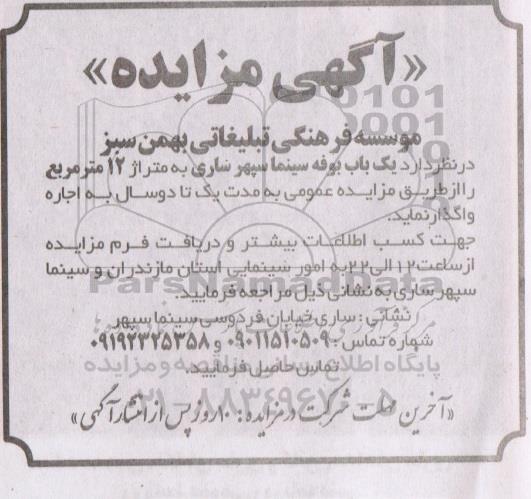 «آگهی مزایده»
موسسه فرهنگی تبلیغاتی بهمن سبز
در نظر دارد یک باب بوفه سینما سپهر ساری به متراژ ۱۲ مترمربع
را از طریق مزایده عمومی به مدت یک تا دوسال به اجاره
واگذار نماید.
جهت کسب اطلاعات بیشتر و دریافت فرم مزایده
از ساعت ۱۲ الی ۲۲ به امور سینمایی استان مازندران و سینما
سپهر ساری به نشانی ذیل مراجعه فرمایید.
ParsNamadData
نشانی: ساری خیابان فردوسی سینما سپهر
شماره تماس: ۰۹۰۱۱۵۱۰۵۰۹ و ۰۹۱۹۲۳۲۵۳۵۸
تماس حاصل فرمایید.
پایگاه اطلاع رسانی مناقصه و مزایده
۰۲۱-۸۸۳۴۹۶۷۰-۵
«آخرین مهلت شرکت در مزایده: ۱۰ روز پس از انتشار آگهی»